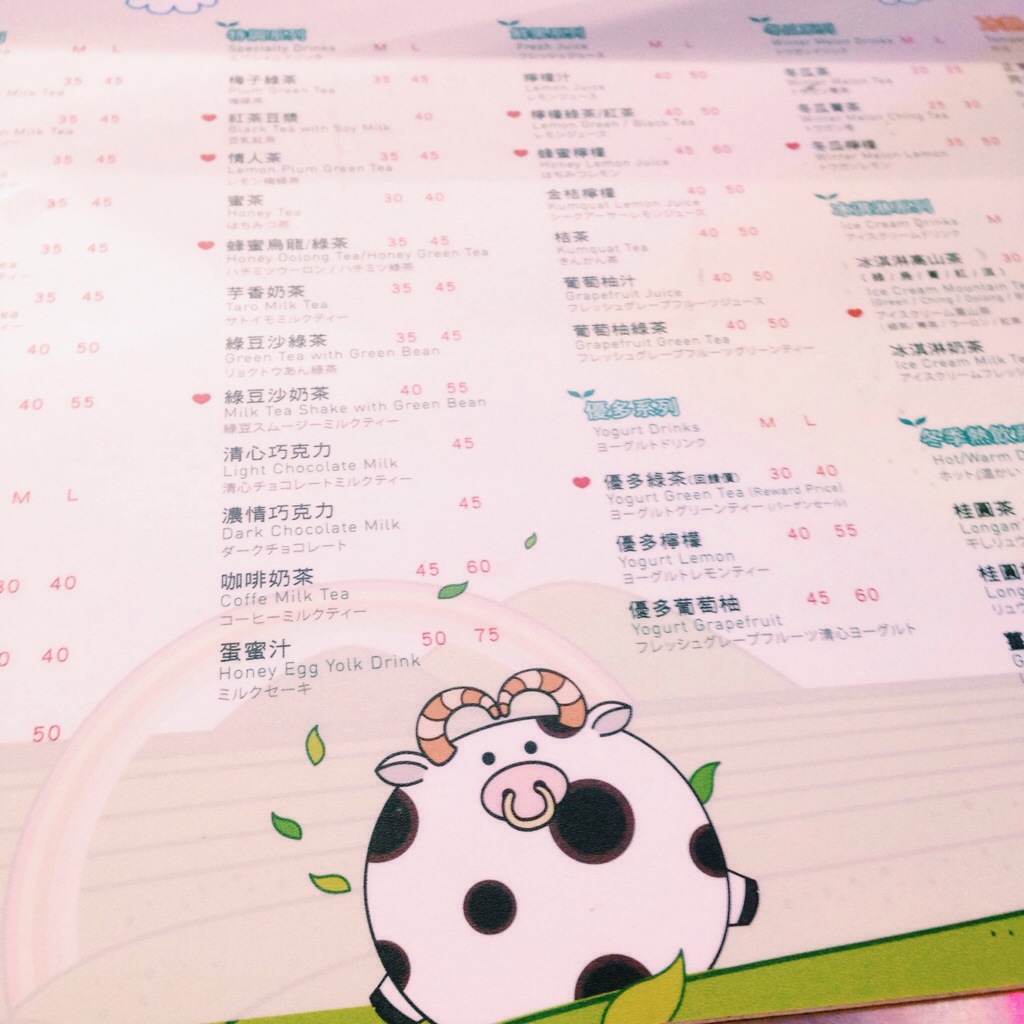 M L
35 45
Milk Tea
35 45
Milk Tea
35 45
35 45
35 45
35 45
40 50
40 55
M L
30 40
40
50
Specialty Drinks M L
梅子綠茶 35 45
Plum Green Tea
梅綠茶
紅茶豆漿 40
Black Tea with Soy Milk
豆乳紅茶
情人茶 35 45
Lemon Plum Green Tea
レモン梅綠茶
蜜茶 30 40
Honey Tea
はちみつ茶
蜂蜜烏龍/綠茶 35 45
Honey Oolong Tea/Honey Green Tea
ハチミツウーロン/ハチミツ綠茶
芋香奶茶 35 45
Taro Milk Tea
サトイモミルクティー
綠豆沙綠茶 35 45
Green Tea with Green Bean
リョクトウあん綠茶
綠豆沙奶茶 40 55
Milk Tea Shake with Green Bean
綠豆スムージーミルクティー
清心巧克力 45
Light Chocolate Milk
清心チョコレートミルクティー
濃情巧克力 45
Dark Chocolate Milk
ダークチョコレート
咖啡奶茶 45 60
Coffe Milk Tea
コーヒーミルクティー
蛋蜜汁 50 75
Honey Egg Yolk Drink
ミルクセーキ
Fresh Juice M L
フレッシュジュース
檸檬汁 40 50
Lemon Juice
レモンジュース
檸檬綠茶/紅茶 40 50
Lemon Green / Black Tea
レモンジュース
蜂蜜檸檬 45 60
Honey Lemon Juice
はちみつレモン
金桔檸檬 40 50
Kumquat Lemon Juice
シークアーサーレモンジュース
桔茶 40 50
Kumquat Tea
きんかん茶
葡萄柚汁 40 50
Grapefruit Juice
フレッシュグレープフルーツジュース
葡萄柚綠茶 40 50
Grapefruit Green Tea
フレッシュグレープフルーツグリーンティー
優多系列
Yogurt Drinks M L
ヨーグルトドリンク
優多綠茶(回饋價) 30 40
Yogurt Green Tea (Reward Price)
ヨーグルトグリーンティー(バーゲンセール)
優多檸檬 40 55
Yogurt Lemon
ヨーグルトレモンティー
優多葡萄柚 45 60
Yogurt Grapefruit
フレッシュグレープフルーツ清心ヨーグルト
Winter Melon Drinks M L
トウガンドリンク
冬瓜茶 20 25
Winter Melon Tea
冬瓜菁茶 25 30
Winter Melon Ching Tea
冬瓜檸檬 35 50
Winter Melon Lemon
トウガンレモン
冰淇淋系列
Ice Cream Drinks M
アイスクリームドリンク
冰淇淋高山茶 30
Ice Cream Mountain Te
アイスクリーム高山茶
冰淇淋奶茶
Ice Cream Milk Te
アイスクリームフレッシ
冬季熱飲
Hot/Warm D
ホット(温かい
桂圓茶
Longan
干しリュウ
桂圓
Long
リュウ